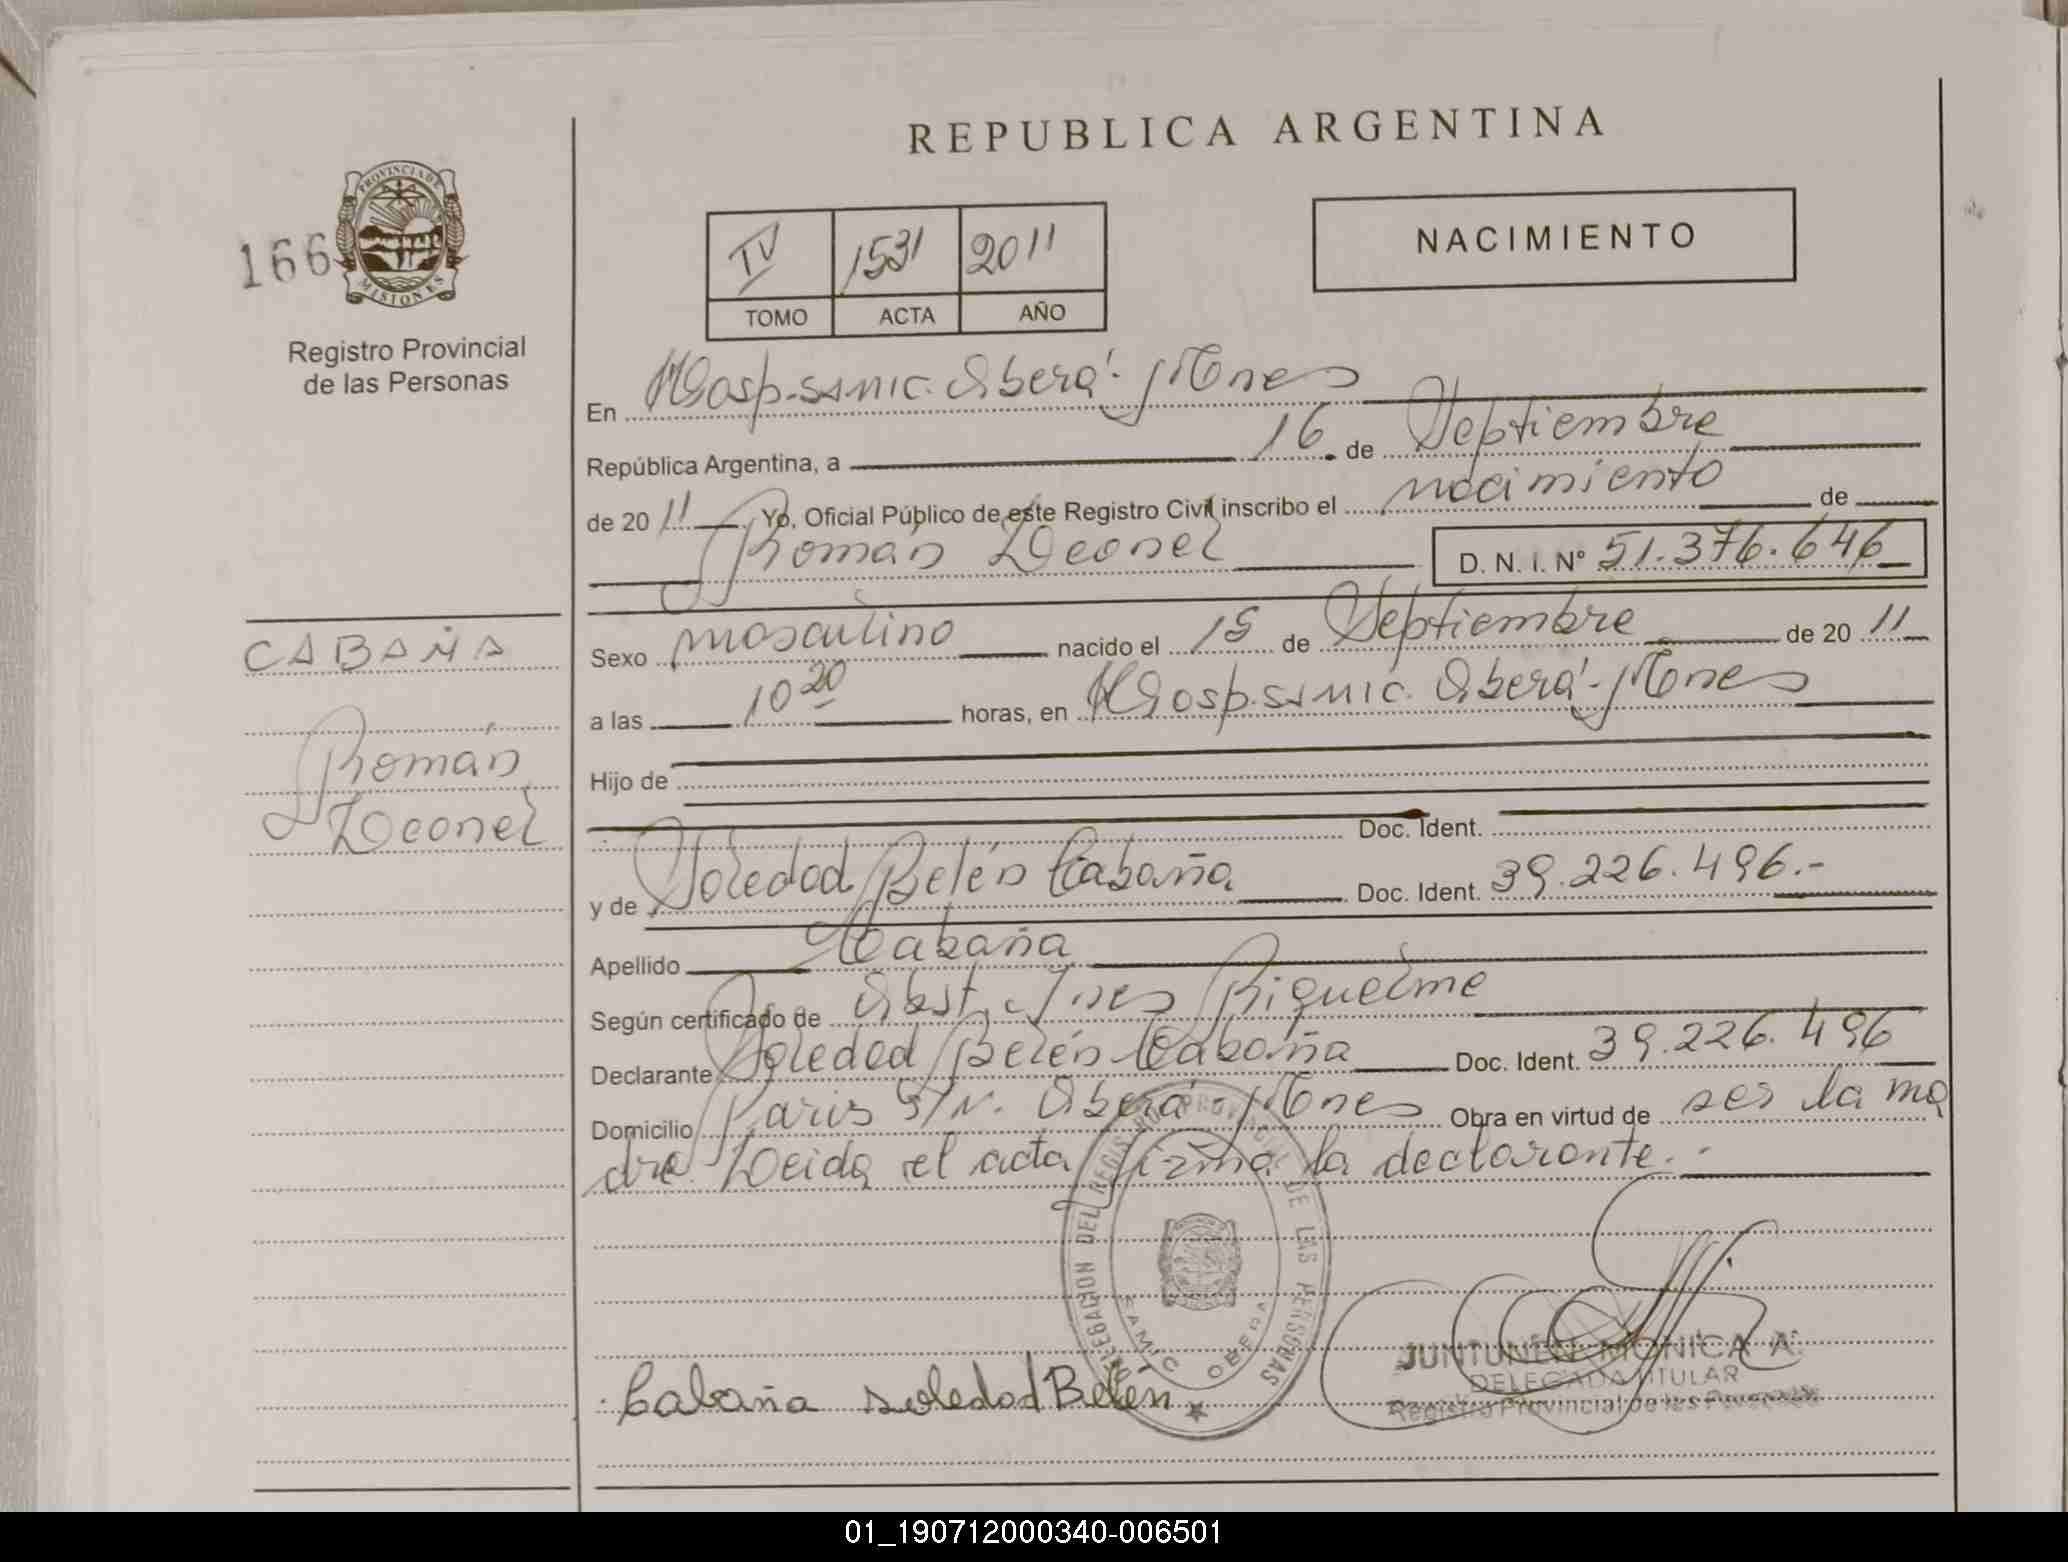 REPUBLICA ARGENTINA
166
PROVINCIA DE
MISIONES
Registro Provincial
de las Personas
IV 1531 2011
TOMO ACTA AÑO
NACIMIENTO
En Hosp. SAMIC. Oberá - Mnes
República Argentina, a 16 de Septiembre
de 20 11 Yo, Oficial Público de este Registro Civil inscribo el nacimiento de
Román Leonel D. N. I. Nº 51.376.646
CABAÑA
Román
Leonel
Sexo masculino nacido el 15 de Septiembre de 20 11
a las 10 20 horas, en Hosp. SAMIC. Oberá - Mnes
Hijo de
Doc. Ident.
y de Soledad Belén Cabaña Doc. Ident. 39.226.496.-
Apellido Cabaña
Según certificado de Obst. Ines Riquelme
Declarante Soledad Belén Cabaña Doc. Ident. 39.226.496
Domicilio Paris S/N. Oberá - Mnes Obra en virtud de ser la ma
dre. Leida el acta firma la declarante.-
DELEGACION DEL REGISTRO PROVINCIAL DE LAS PERSONAS
SAMIC OBERA
Cabaña Soledad Belén
JUNTUNEN MONICA A.
DELEGADA TITULAR
Registro Provincial de las Personas
01_190712000340-006501